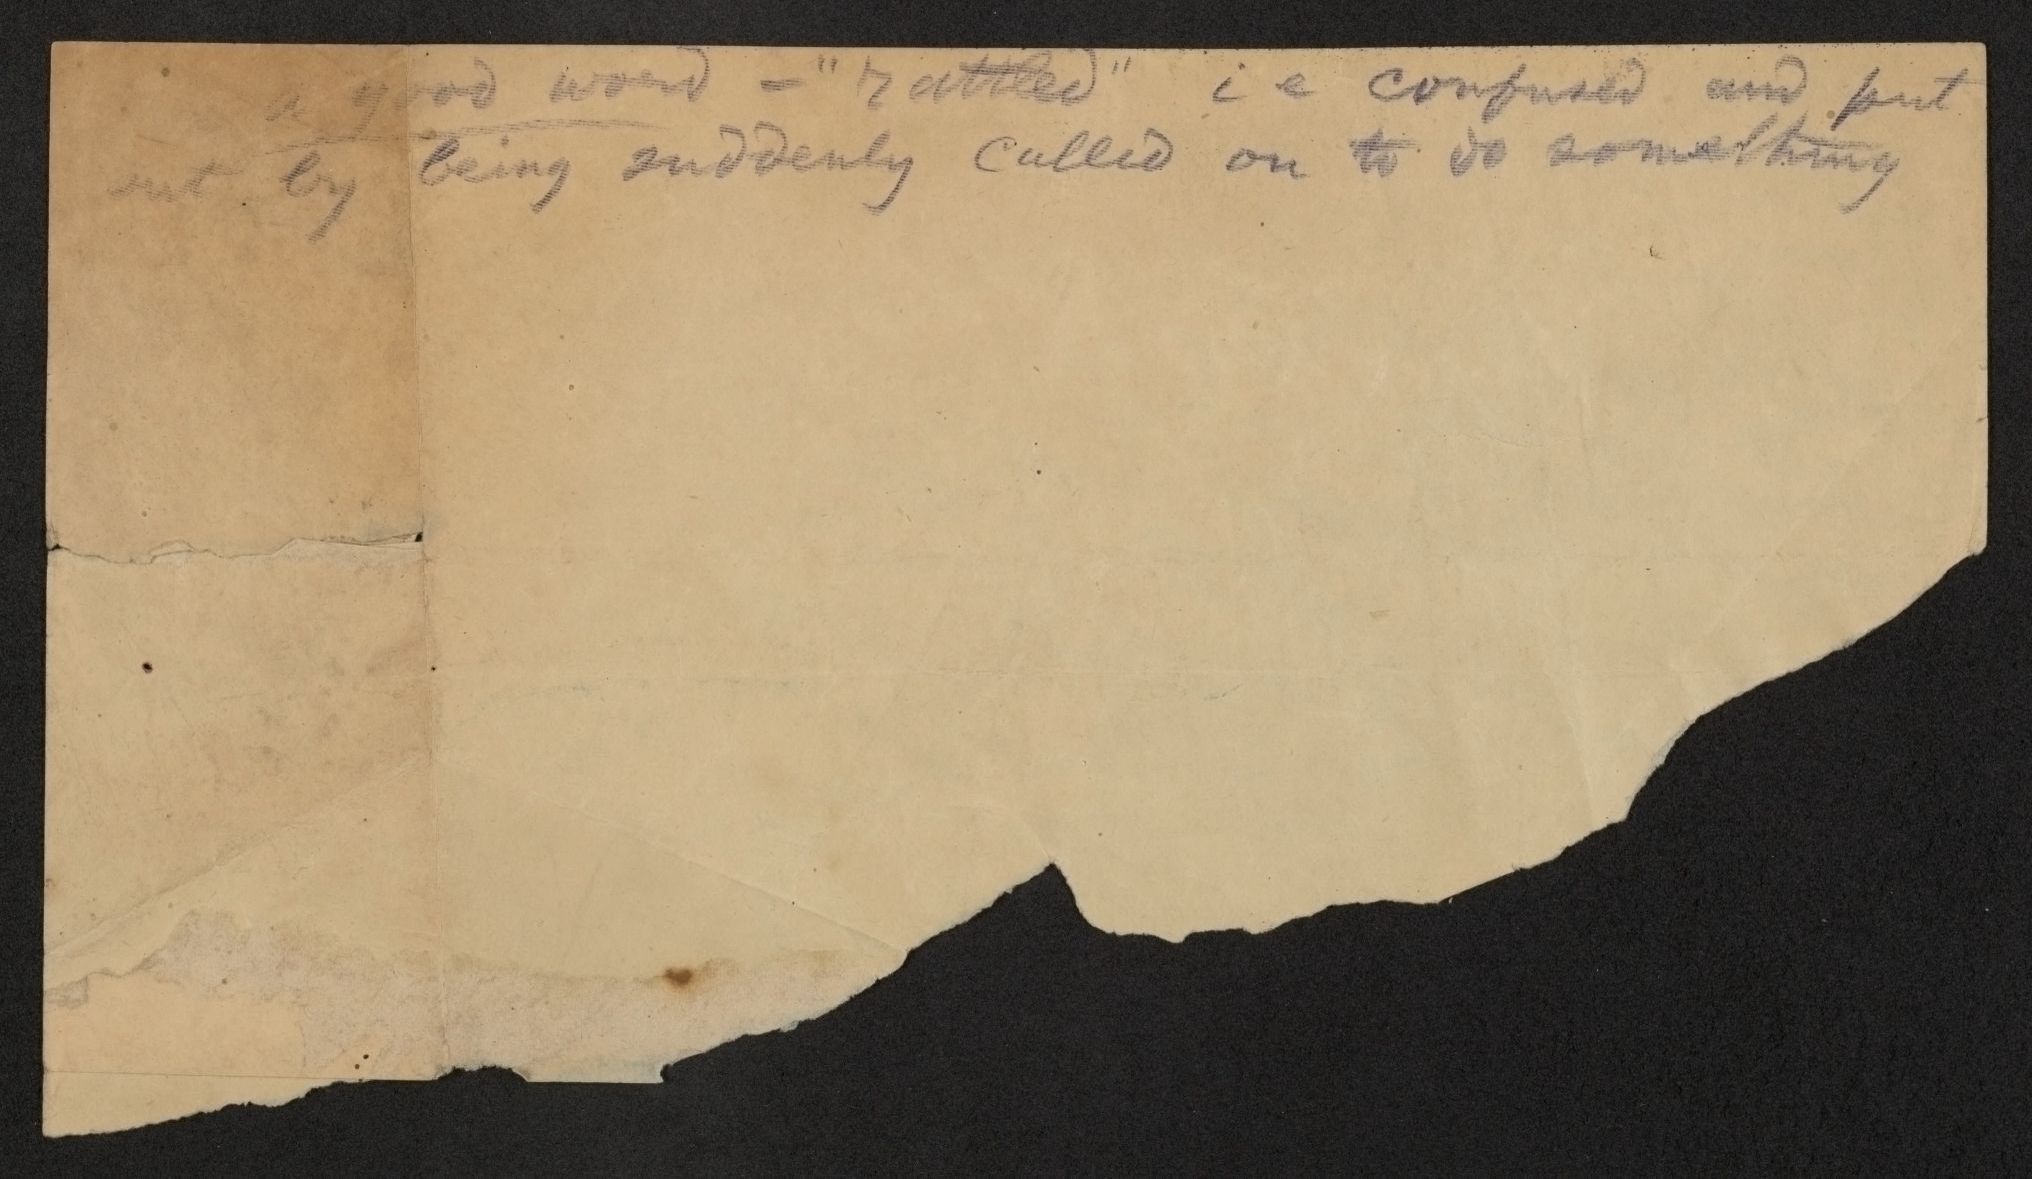 a good word – "rattled" i e confused and put
out by being suddenly called on to do something